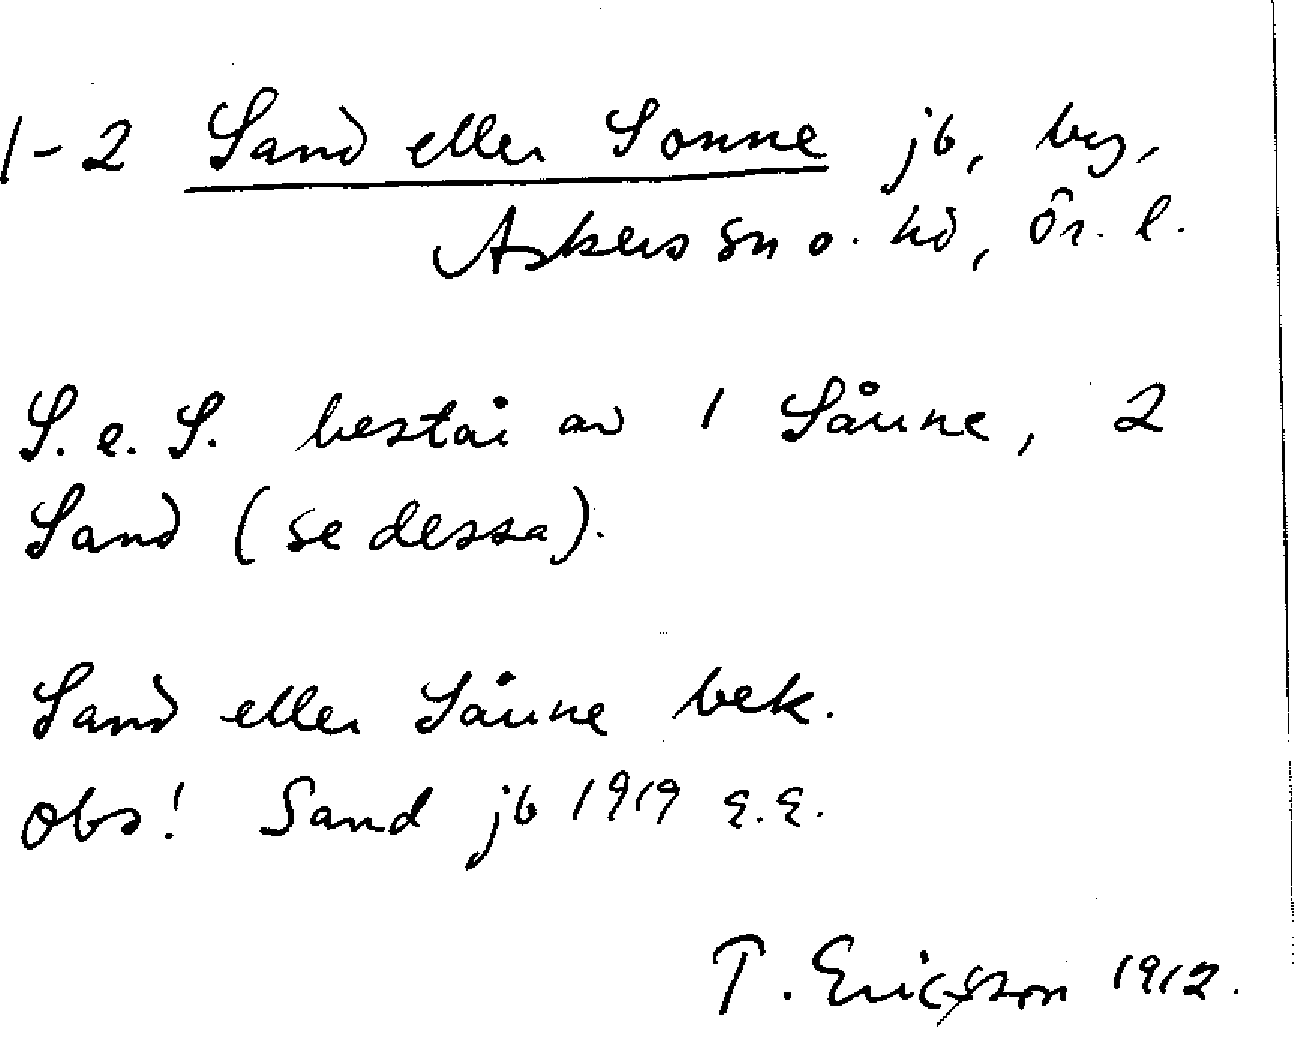 1-2 Sand eller Sonne jb, by,
Askers sn o. hd, Ör. l.
S. e. S. består av 1 Såune, 2
Sand (se dessa).
Sand eller Såune bek.
Obs! Sand jb 1919 E.E.
T. Ericsson 1912.